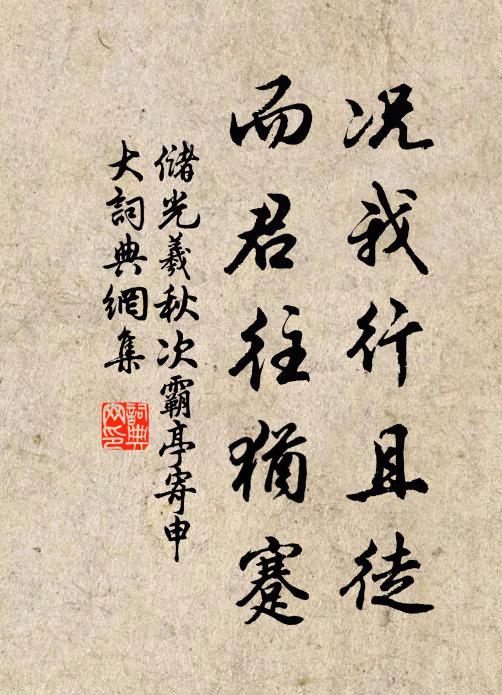 况我行且徒
而君往犹蹇
儲光羲秋次霸亭寄申
大詞典網集
詞典網印